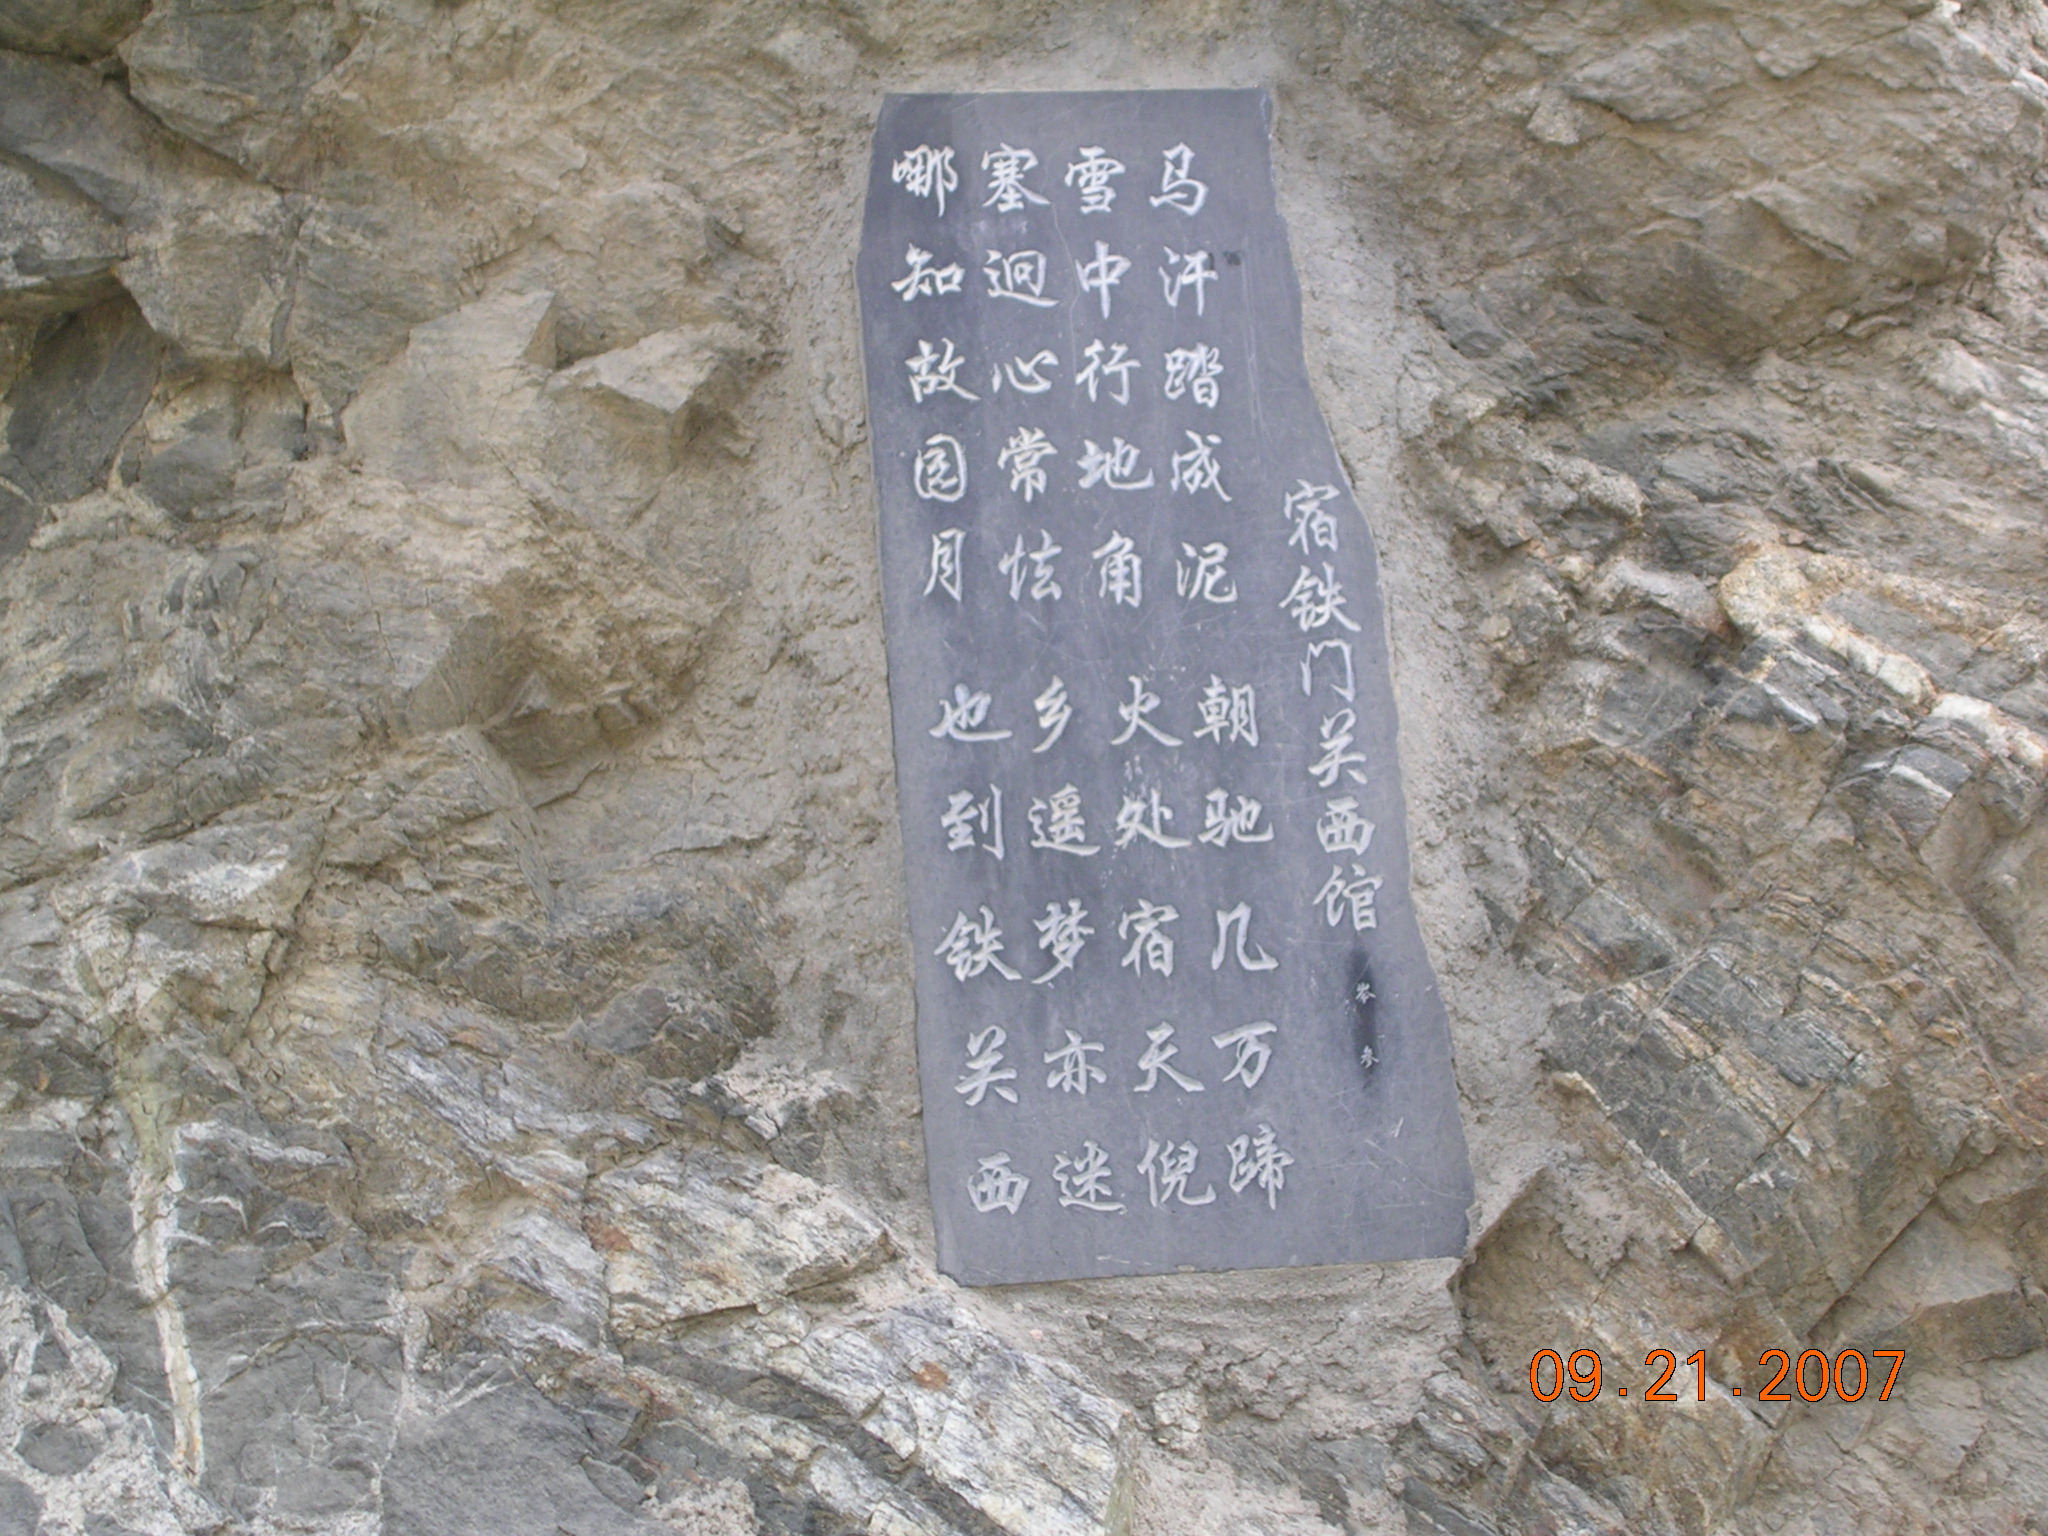 宿铁门关西馆
岑参
马汗踏成泥 朝驰几万蹄
雪中行地角 火处宿天倪
塞迥心常怯 乡遥梦亦迷
哪知故园月 也到铁关西
09.21.2007